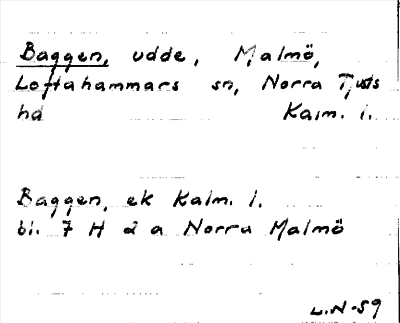 Baggen, udde, Malmö,
Loftahammars sn, Norra Tjusts
hd Kalm. l.
Baggen, ek Kalm. l.
bl. 7 H d a Norra Malmö
L.N-59